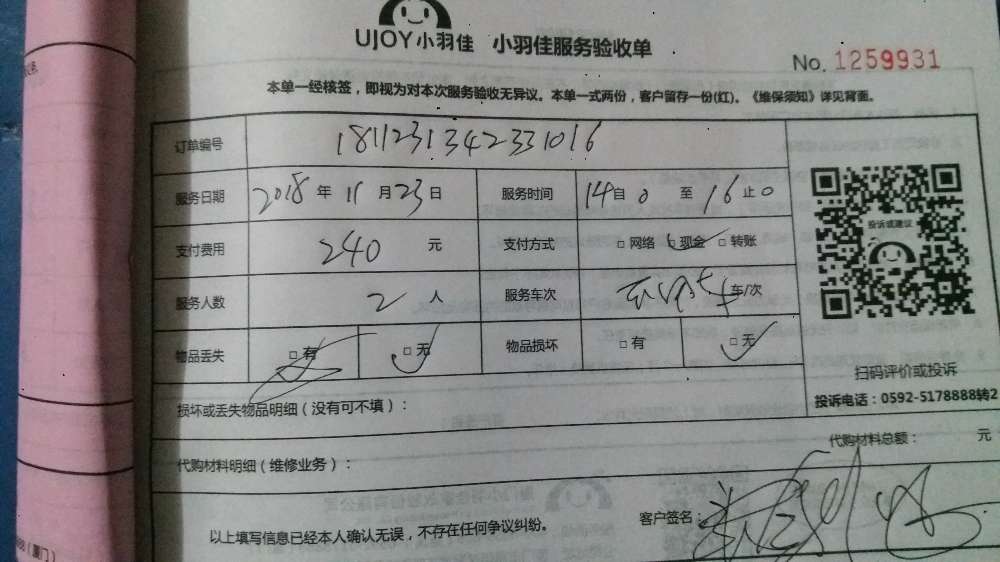 UJOY小羽佳 小羽佳服务验收单
No. 1259931
本单一经核签，即视为对本次服务验收无异议。本单一式两份，客户留存一份(红)。《维保须知》详见背面。
订单编号 1811231342331016
服务日期 2018 年 11 月 23 日 服务时间 14 自 0 至 16 止 0
支付费用 240 元 支付方式 □ 网络 □ 现金 □ 转账
服务人数 2 人 服务车次 车/次
物品丢失 □ 有 □ 无 物品损坏 □ 有 □ 无
投诉或建议
扫码评价或投诉
投诉电话：0592-5178888转2
损坏或丢失物品明细（没有可不填）：
代购材料总额： 元
代购材料明细（维修业务）：
客户签名：
以上填写信息已经本人确认无误，不存在任何争议纠纷。
（厦门）